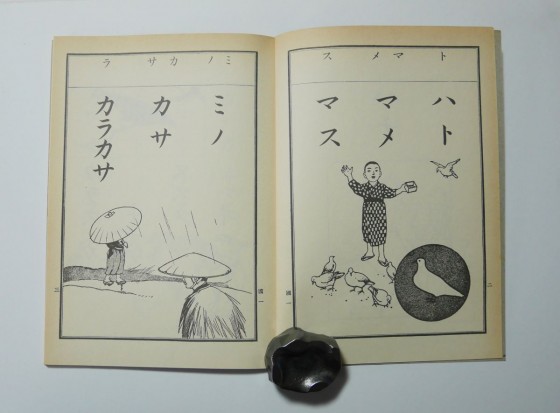 ト マ メ ス
ハト
マメ
マス
二
ミ ノ カ サ ラ
ミノ
カサ
カラカサ
三